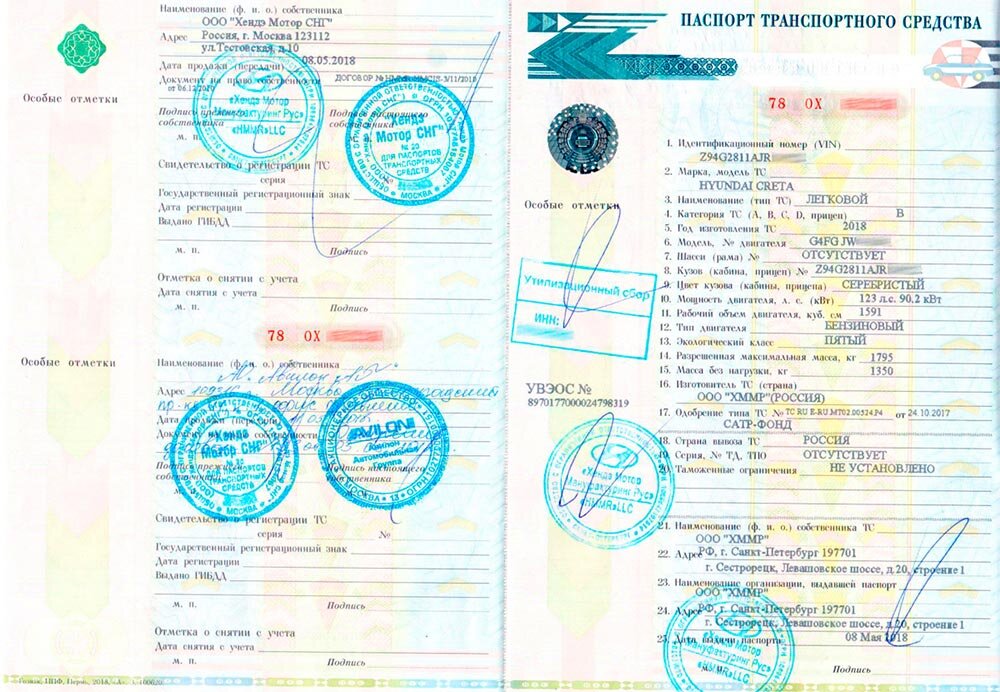 Наименование (ф. и о.) собственника
ООО "Хендэ Мотор СНГ"
Адрес Россия, г. Москва 123112
ул.Тестовская, д.10
Дата продажи (передачи) 08.05.2018
Документ на право собственности ДОГОВОР №
Особые отметки
Подпись прежнего собственника
Подпись настоящего собственника
м. п.
«Хендэ Мотор
Мануфактуринг Рус»
«HMMR»LLC
"Хендэ
Мотор СНГ"
№ 20
ДЛЯ ПАСПОРТОВ
ТРАНСПОРТНЫХ
СРЕДСТВ
МОСКВА
Свидетельство о регистрации ТС
серия
Государственный регистрационный знак
Дата регистрации
Выдано ГИБДД
м. п. Подпись
Отметка о снятии с учета
Дата снятия с учета
м. п. Подпись
78 ОХ
Особые отметки
Наименование (ф. и о.) собственника
Адрес
Дата продажи (передачи)
Документ на право собственности
Подпись прежнего собственника
Подпись настоящего собственника
"Хендэ
Мотор СНГ"
ДЛЯ ПАСПОРТОВ
ТРАНСПОРТНЫХ
СРЕДСТВ
МОСКВА
АКЦИОНЕРНОЕ ОБЩЕСТВО
AVILON
Авилон
Автомобильная
Группа
МОСКВА
Свидетельство о регистрации ТС
серия №
Государственный регистрационный знак
Дата регистрации
Выдано ГИБДД
м. п. Подпись
Отметка о снятии с учета
Дата снятия с учета
м. п. Подпись
ПАСПОРТ ТРАНСПОРТНОГО СРЕДСТВА
78 ОХ
1. Идентификационный номер (VIN)
Z94G2811AJR
2. Марка, модель ТС
HYUNDAI CRETA
3. Наименование (тип ТС) ЛЕГКОВОЙ
Особые отметки
4. Категория ТС (А, В, С, D, прицеп) В
5. Год изготовления ТС 2018
6. Модель, № двигателя G4FG JW
7. Шасси (рама) № ОТСУТСТВУЕТ
8. Кузов (кабина, прицеп) № Z94G2811AJR
9. Цвет кузова (кабины, прицепа) СЕРЕБРИСТЫЙ
10. Мощность двигателя, л. с. (кВт) 123 л.с. 90,2 кВт
11. Рабочий объем двигателя, куб. см 1591
12. Тип двигателя БЕНЗИНОВЫЙ
13. Экологический класс ПЯТЫЙ
14. Разрешенная максимальная масса, кг 1795
15. Масса без нагрузки, кг 1350
16. Изготовитель ТС (страна)
ООО "ХММР"(РОССИЯ)
17. Одобрение типа ТС № ТС RU E-RU.MT02.00524.P4 от 24.10.2017
САТР-ФОНД
18. Страна вывоза ТС РОССИЯ
19. Серия, № ТД, ТПО ОТСУТСТВУЕТ
20. Таможенные ограничения НЕ УСТАНОВЛЕНО
Утилизационный сбор
ИНН:
УВЭОС №
8970177000024798319
«Хендэ Мотор
Мануфактуринг Рус»
«HMMR»LLC
21. Наименование (ф. и. о.) собственника ТС
ООО "ХММР"
22. Адрес РФ, г. Санкт-Петербург 197701
г. Сестрорецк, Левашовское шоссе, д.20, строение 1
23. Наименование организации, выдавшей паспорт
ООО "ХММР"
24. Адрес РФ, г. Санкт-Петербург 197701
г. Сестрорецк, Левашовское шоссе, д.20, строение 1
25. Дата выдачи паспорта 08 Мая 2018
«Хендэ Мотор
Мануфактуринг Рус»
«HMMR»LLC
м. п. Подпись